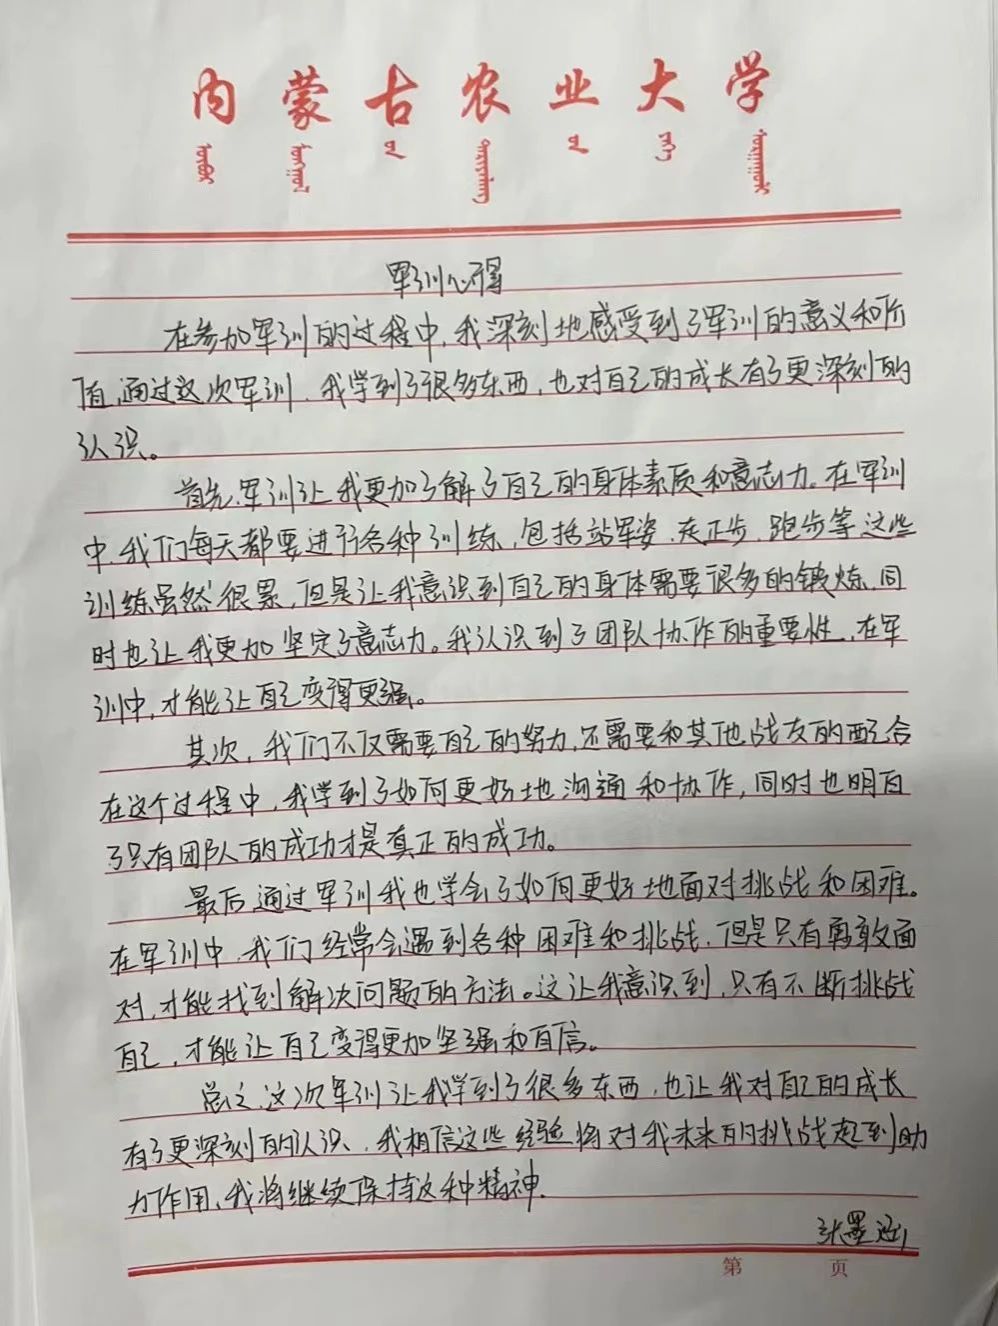 内蒙古农业大学
军训心得
在参加军训的过程中,我深刻地感受到了军训的意义和价
值,通过这次军训,我学到了很多东西,也对自己的成长有了更深刻的
认识。
首先,军训让我更加了解了自己的身体素质和意志力。在军训
中,我们每天都要进行各种训练,包括站军姿、走正步、跑步等,这些
训练虽然很累,但是让我意识到自己的身体需要很多的锻炼,同
时也让我更加坚定了意志力。我认识到了团队协作的重要性,在军
训中,才能让自己变得更强。
其次,我们不仅需要自己的努力,还需要和其他战友的配合
在这个过程中,我学到了如何更好地沟通和协作,同时也明白
了只有团队的成功才是真正的成功。
最后,通过军训我也学会了如何更好地面对挑战和困难。
在军训中,我们经常会遇到各种困难和挑战,但是只有勇敢面
对,才能找到解决问题的方法。这让我意识到,只有不断挑战
自己,才能让自己变得更加坚强和自信。
总之,这次军训让我学到了很多东西,也让我对自己的成长
有了更深刻的认识,我相信这些经验将对我未来的挑战起到助
力作用,我将继续保持这种精神.
张墨
第 页